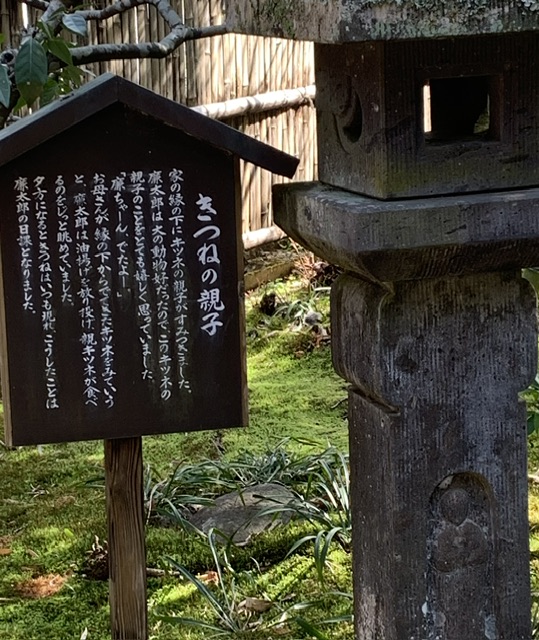 きつねの親子
家の縁の下にキツネの親子がすみつきました。
廉太郎は大の動物好だったので、このキツネの
親子のことをとても嬉しく思っていました。
「廉ちゃーん、でたよー」
お母さんが縁の下からでてきたキツネをみていう
と、廉太郎は油揚げを放り投げ、親キツネが食べ
るのをじっと眺めていました。
夕方になるときつねはいつも現れ、こうしたことは
廉太郎の日課となりました。